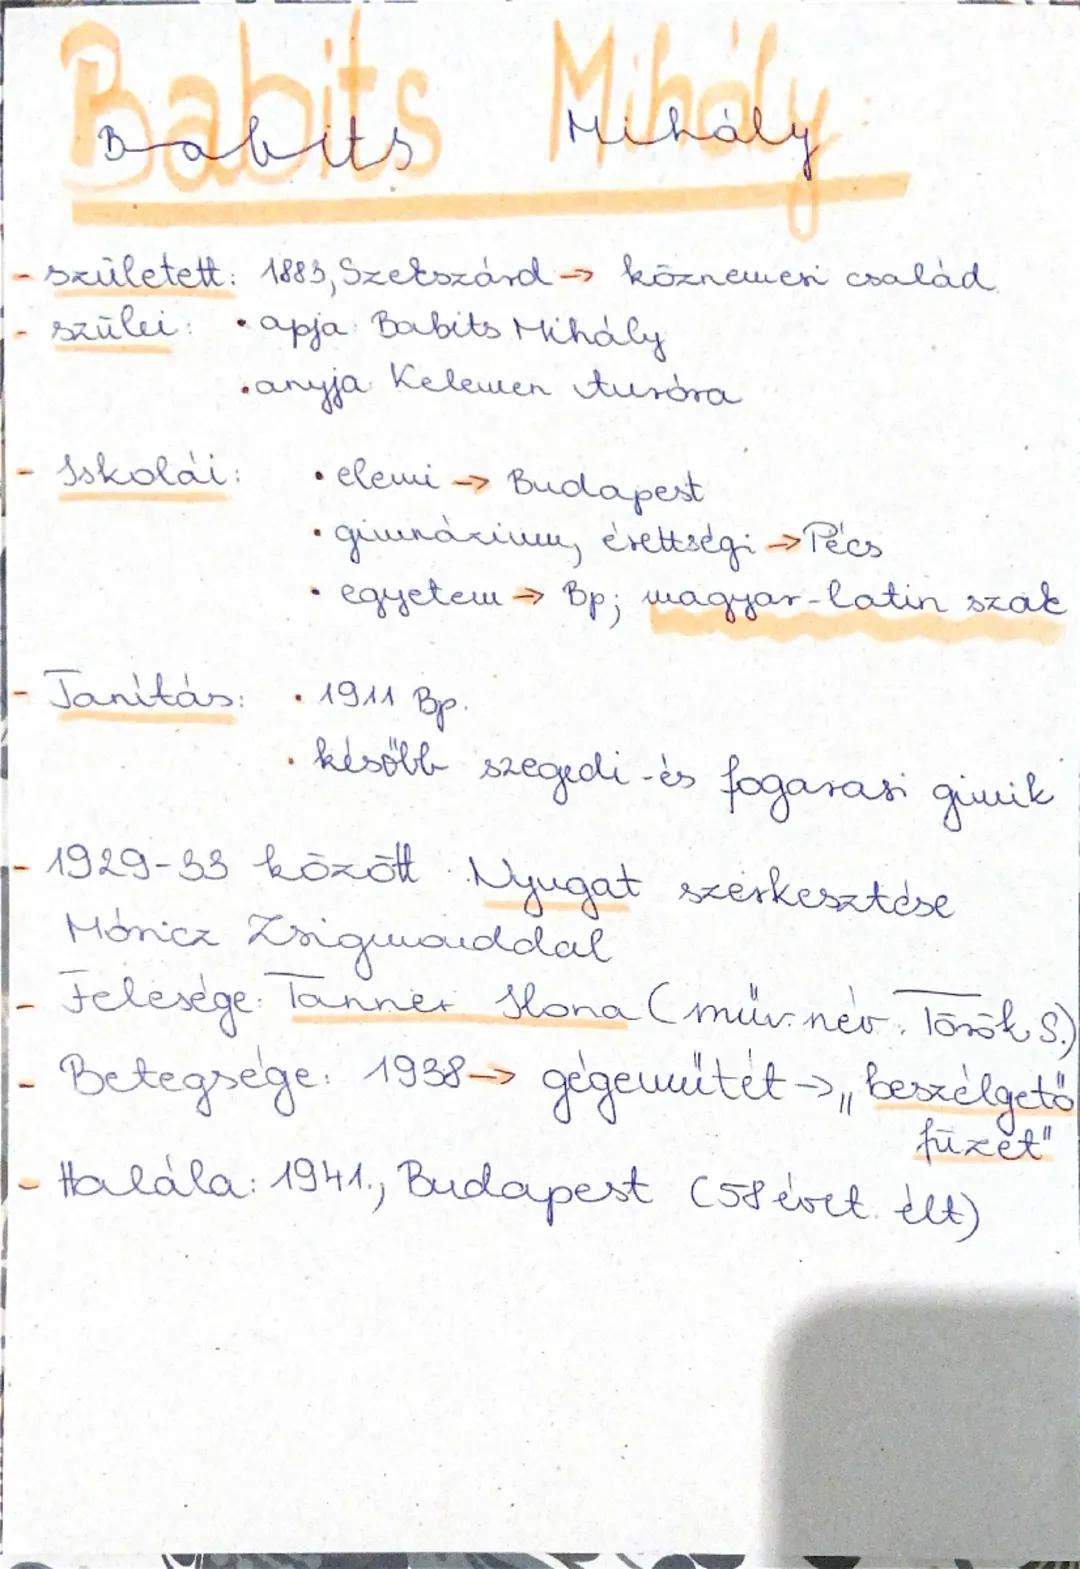 Babits Mihály
- született: 1883, Szekszárd → köznemesi család
- szülei: • apja: Babits Mihály
• anyja: Kelemen Auróra
- Iskolái: • elemi → Budapest
• gimnázium, érettségi → Pécs
• egyetem → Bp; magyar-latin szak
- Tanítás: • 1911 Bp.
• később szegedi-és fogarasi gimik
- 1929-33 között Nyugat szerkesztése
Móricz Zsigmonddal
- Felesége: Tanner Ilona (műv. név: Török S.)
- Betegsége: 1938 → gégeműtét → „beszélgető
füzet"
- Halála: 1941., Budapest (58 évet élt)